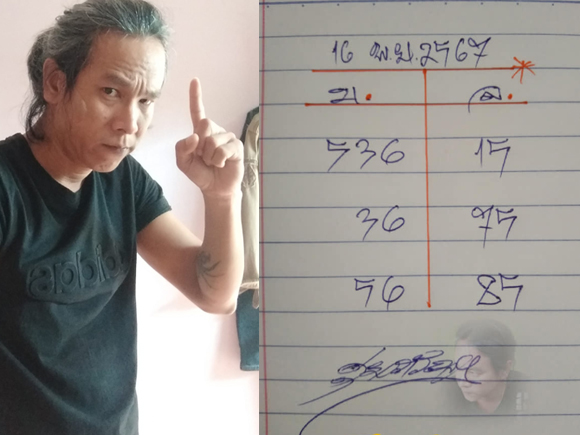 16 พ.ย.2567
บ. ล.
536 15
36 75
56 85